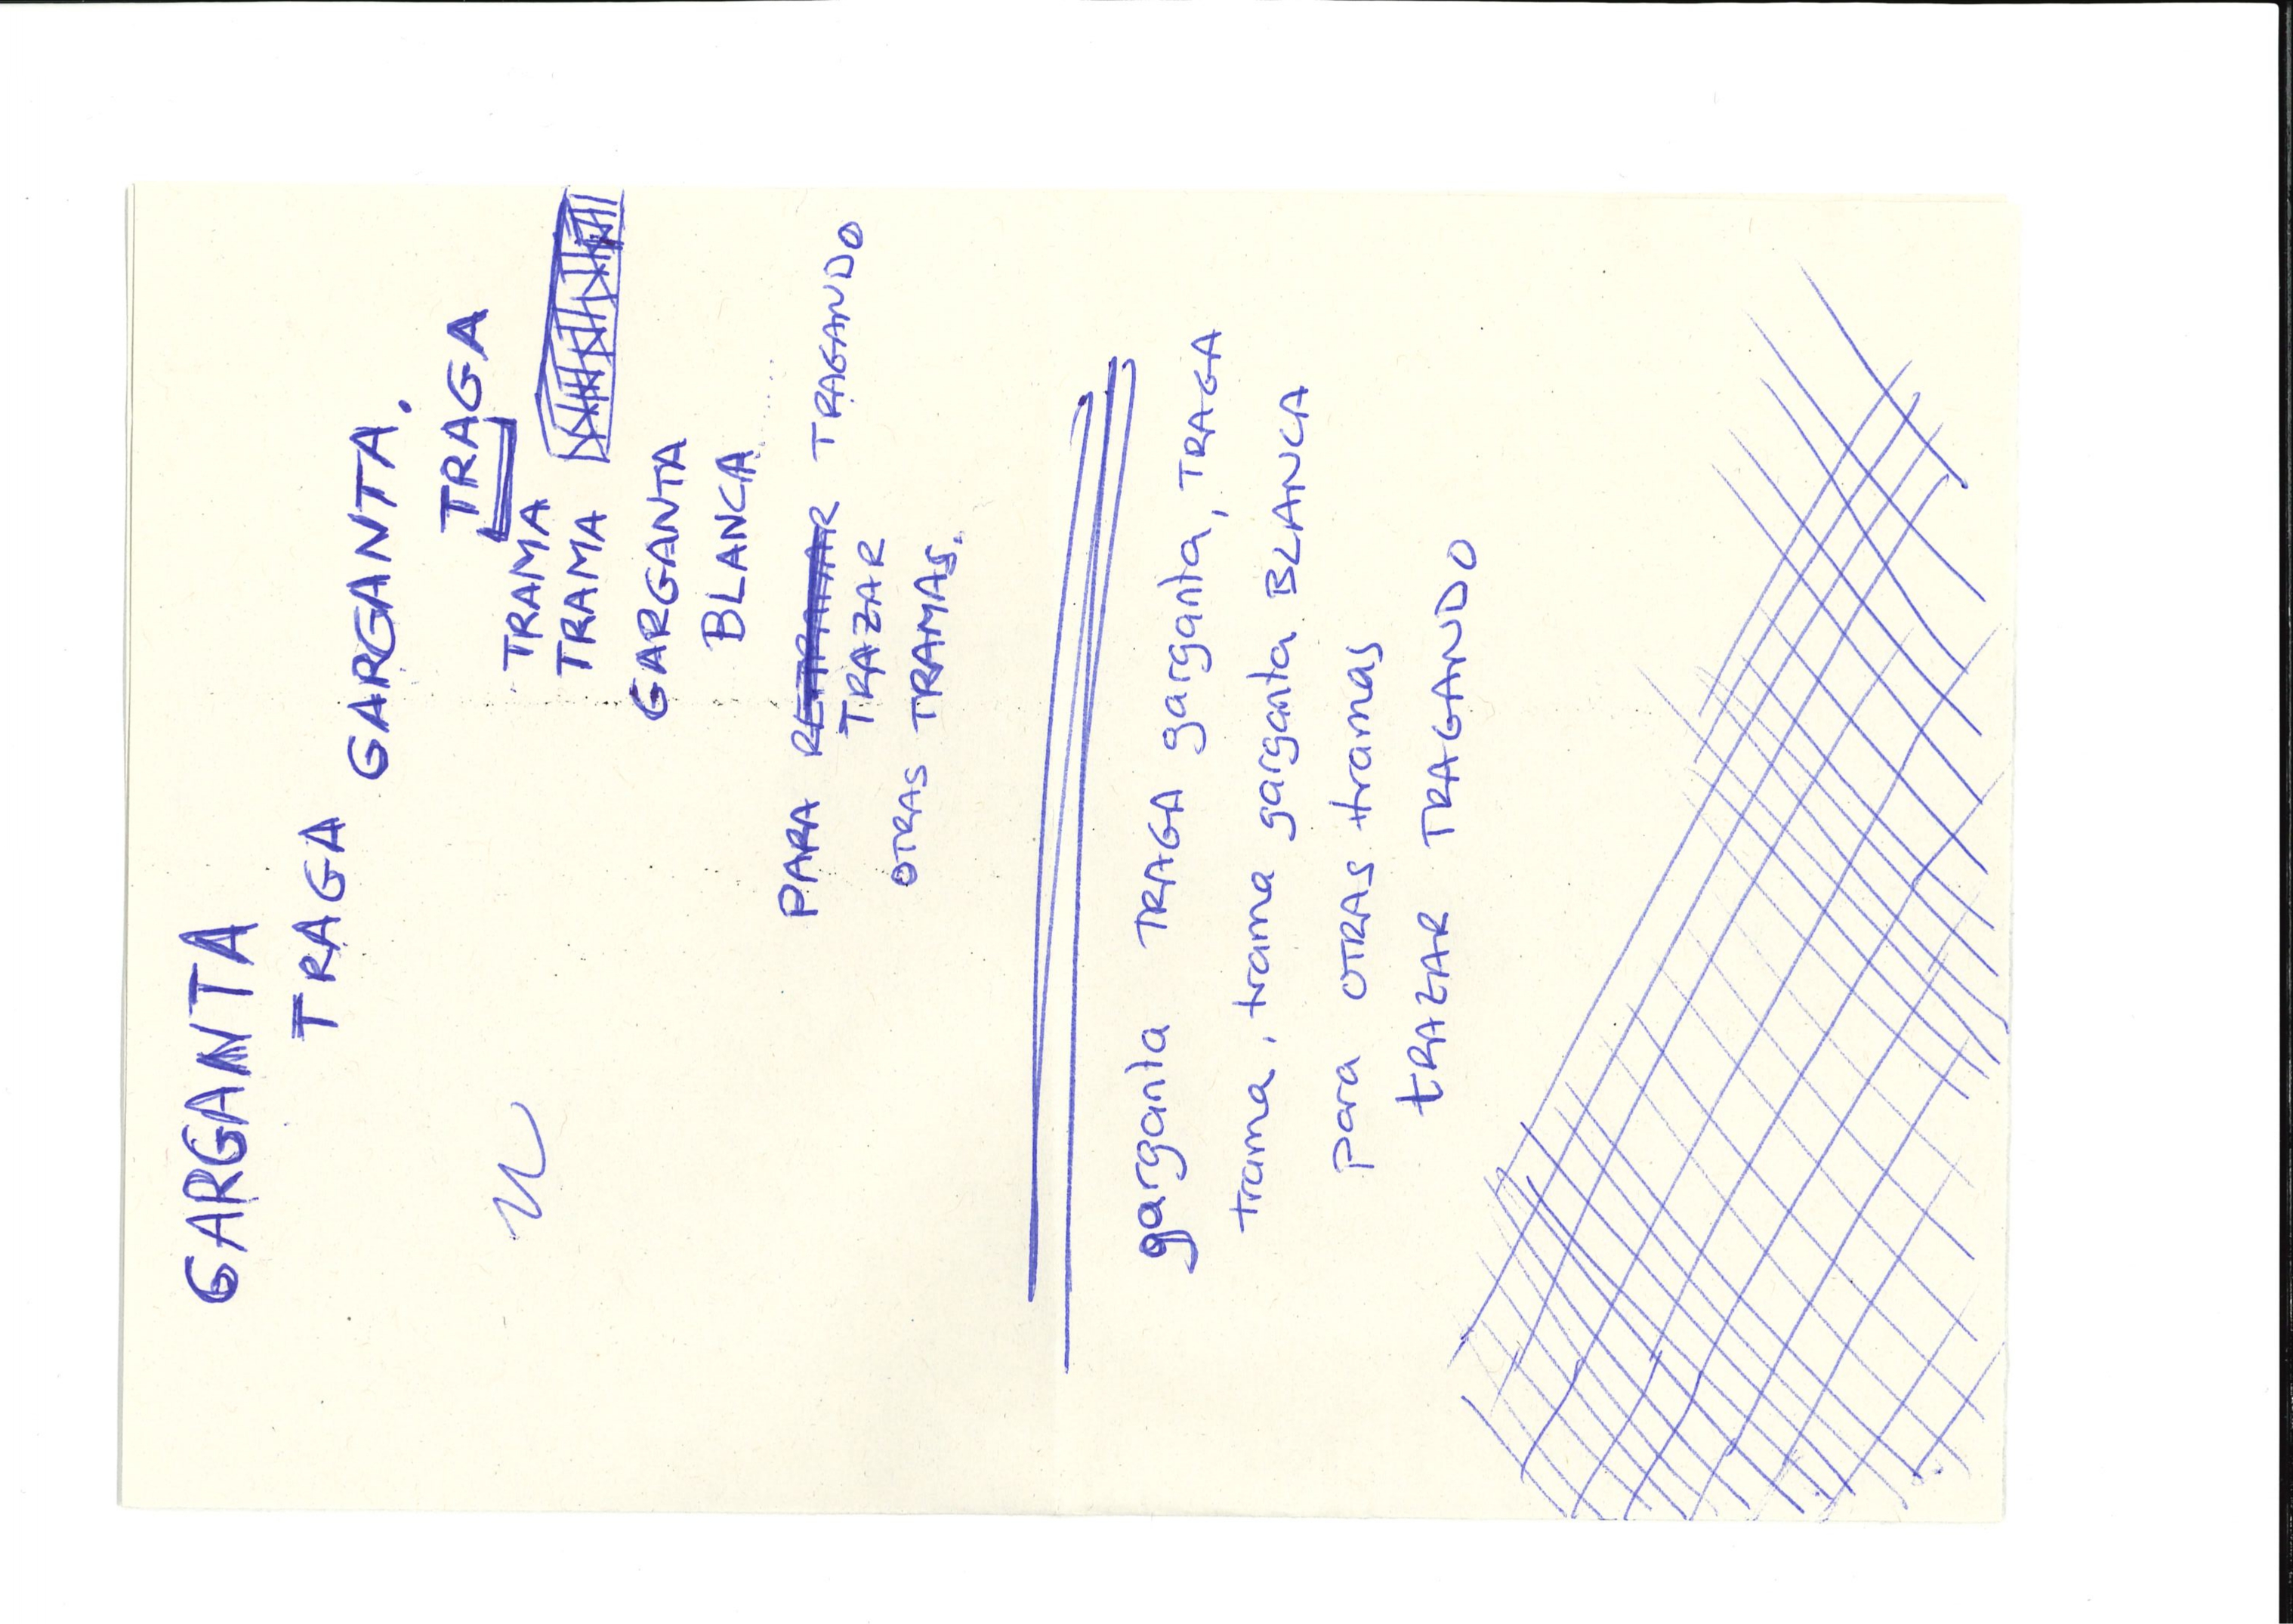 GARGANTA
TRAGA
GARGANTA.
TRAGA
TRAMA
TRAMA
GARGANTA
BLANCA.......
PARA RETRAMAR TRAGANDO
TRAZAR
OTRAS TRAMAS.
garganta TRAGA garganta, TRAGA
trama, trama garganta BLANCA
para OTRAS tramas
tRAZAR TRAGANDO